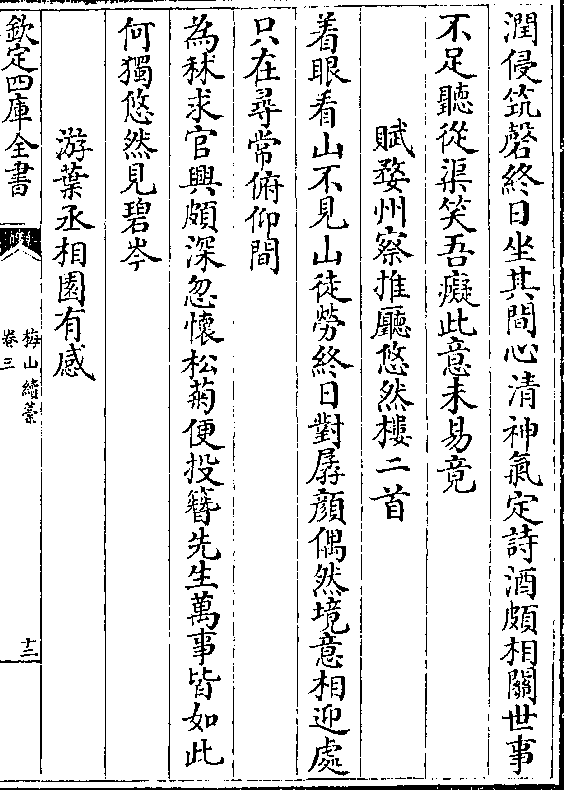 潤侵筑磬終日坐其間心清神氣定詩酒頗相關世事
不足聽從渠笑吾癡此意未易竟
賦婺州察推廳悠然樓二首
着眼看山不見山徒勞終日對孱顔偶然境意相迎處
只在尋常俯仰間
為秫求官興頗深忽懷松菊便投簪先生萬事皆如此
何獨悠然見碧岑
游葉丞相園有感
欽定四庫全書
梅山續藁
卷三
十三